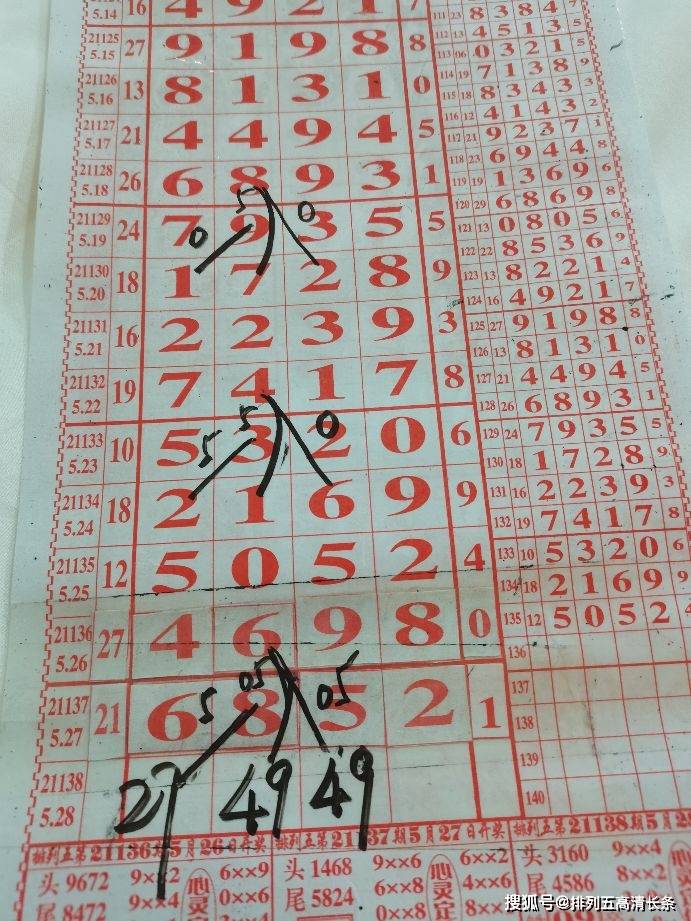 5.14 16 4 9 2 1 7
21125 5.15 27 9 1 9 8 8
21126 5.16 13 8 1 3 1 0
21127 5.17 21 4 4 9 4 5
21128 5.18 26 6 8 9 3 1
5 0
21129 5.19 24 7 9 3 5 5
0
21130 5.20 18 1 7 2 8 9
21131 5.21 16 2 2 3 9 3
21132 5.22 19 7 4 1 7 8
5 0
21133 5.23 10 5 3 2 0 6
5
21134 5.24 18 2 1 6 9 9
21135 5.25 12 5 0 5 2 4
21136 5.26 27 4 6 9 8 0
05 05
21137 5.27 21 6 8 5 2 1
5
21138 5.28
27 49 49
111 23 8 3 8 4 7
112 13 4 5 1 3 5
113 06 0 3 2 1 5
114 19 7 1 3 8 9
115 18 8 3 4 3 3
116 12 4 1 4 3 2
117 21 9 2 3 7 1
118 23 6 9 4 4 8
119 19 1 3 6 9 6
120 29 6 8 6 9 8
121 13 0 8 0 5 6
122 22 8 5 3 6 9
123 13 8 2 2 1 4
124 16 4 9 2 1 7
125 27 9 1 9 8 8
126 13 8 1 3 1 0
127 21 4 4 9 4 5
128 26 6 8 9 3 1
129 24 7 9 3 5 5
130 18 1 7 2 8 9
131 16 2 2 3 9 3
132 19 7 4 1 7 8
133 10 5 3 2 0 6
134 18 2 1 6 9 9
135 12 5 0 5 2 4
136
137
138
139
140
排列五第21136期5月26日开奖 排列五第21137期5月27日开奖 排列五第21138期5月28
头 9672 6××9 头 1468 9××6 6××2 头 3160 9××4
尾 8472 9××4 0××6 尾 5824 6××8 4××6 尾 4586 8××2
心灵 心灵
搜狐号@排列五高清长条